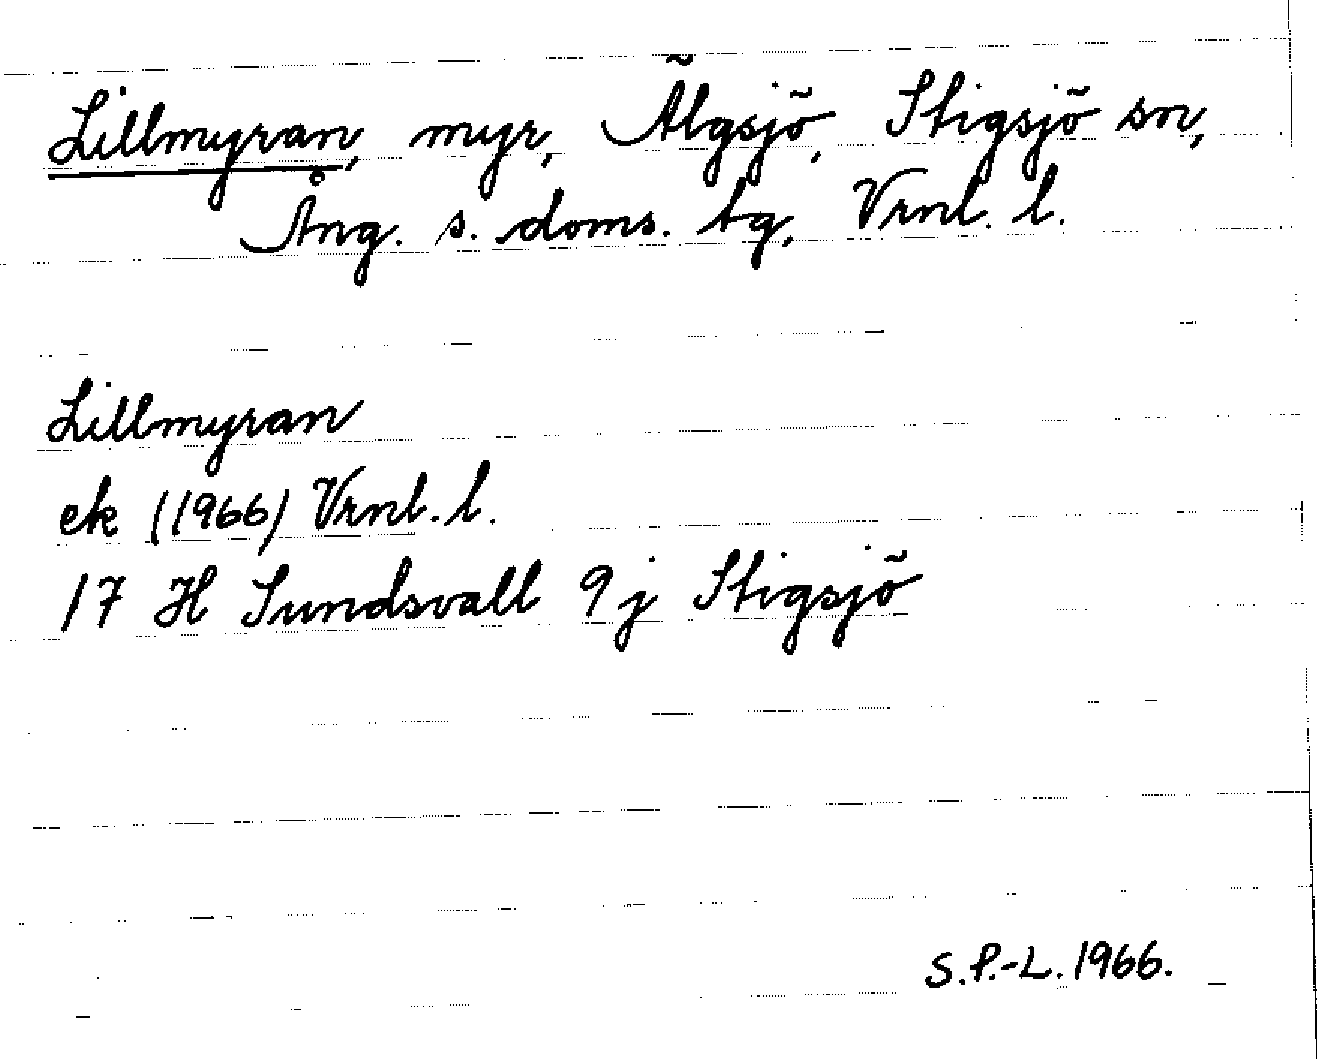 Lillmyran, myr, Älgsjö, Stigsjö sn,
Ång. s. doms. tg, Vrnl. l.
Lillmyran
ek (1966) Vrnl. l.
17 H Sundsvall 9j Stigsjö
S.P.-L. 1966.